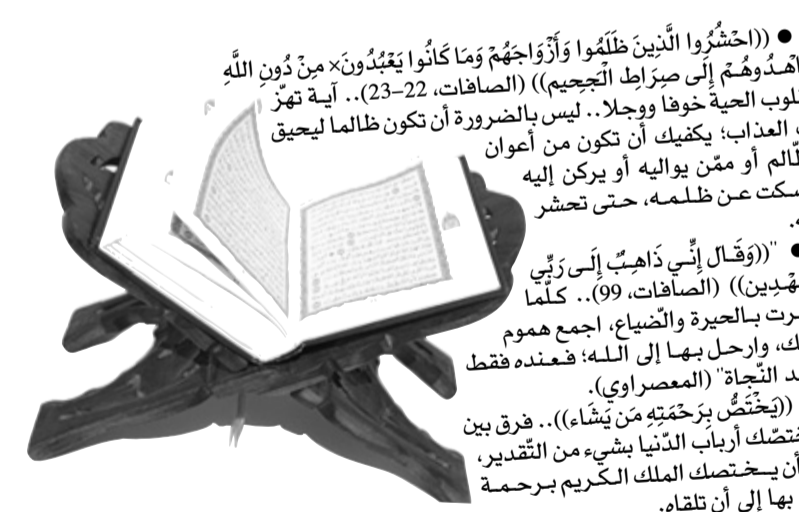 ● ((احْشُرُوا الَّذِينَ ظَلَمُوا وَأَزْوَاجَهُمْ وَمَا كَانُوا يَعْبُدُونَ× مِنْ دُونِ اللَّهِ
اهْدُوهُمْ إِلَى صِرَاطِ الْجَحِيم)) (الصافات، 22–23).. آية تهزّ
لوب الحية خوفا ووجلا.. ليس بالضرورة أن تكون ظالما ليحيق
، العذاب؛ يكفيك أن تكون من أعوان
ظّالم أو ممّن يواليه أو يركن إليه
سكت عن ظلمه، حتى تحشر
ه.
● "((وَقَالَ إِنِّي ذَاهِبٌ إِلَى رَبِّي
هْدِين)) (الصافات، 99).. كلّما
رت بالحيرة والضّياع، اجمع هموم
ك، وارحل بها إلى الله؛ فعنده فقط
د النّجاة" (المعصراوي).
((يَخْتَصُّ بِرَحْمَتِهِ مَن يَشَاء)).. فرق بين
ختصّك أرباب الدّنيا بشيء من التّقدير،
أن يختصك الملك الكريم برحمة
بها إلى أن تلقاه.